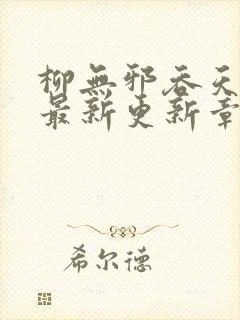 柳無邪吞天
最新更新章
希尔德